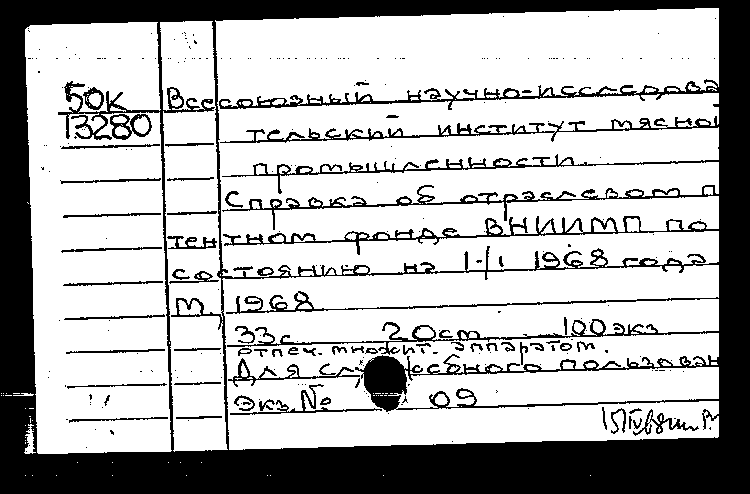 50к Всесоюзный научно-исследова
13280 тельский институт мясной
промышленности.
Справка об отраслевом п
тентном фонде ВНИИМП по
состоянию на 1-/I 1968 года
М. 1968
33с 20см 100экз
отпеч. множит. аппаратом.
Для служебного пользован
Экз. № 09